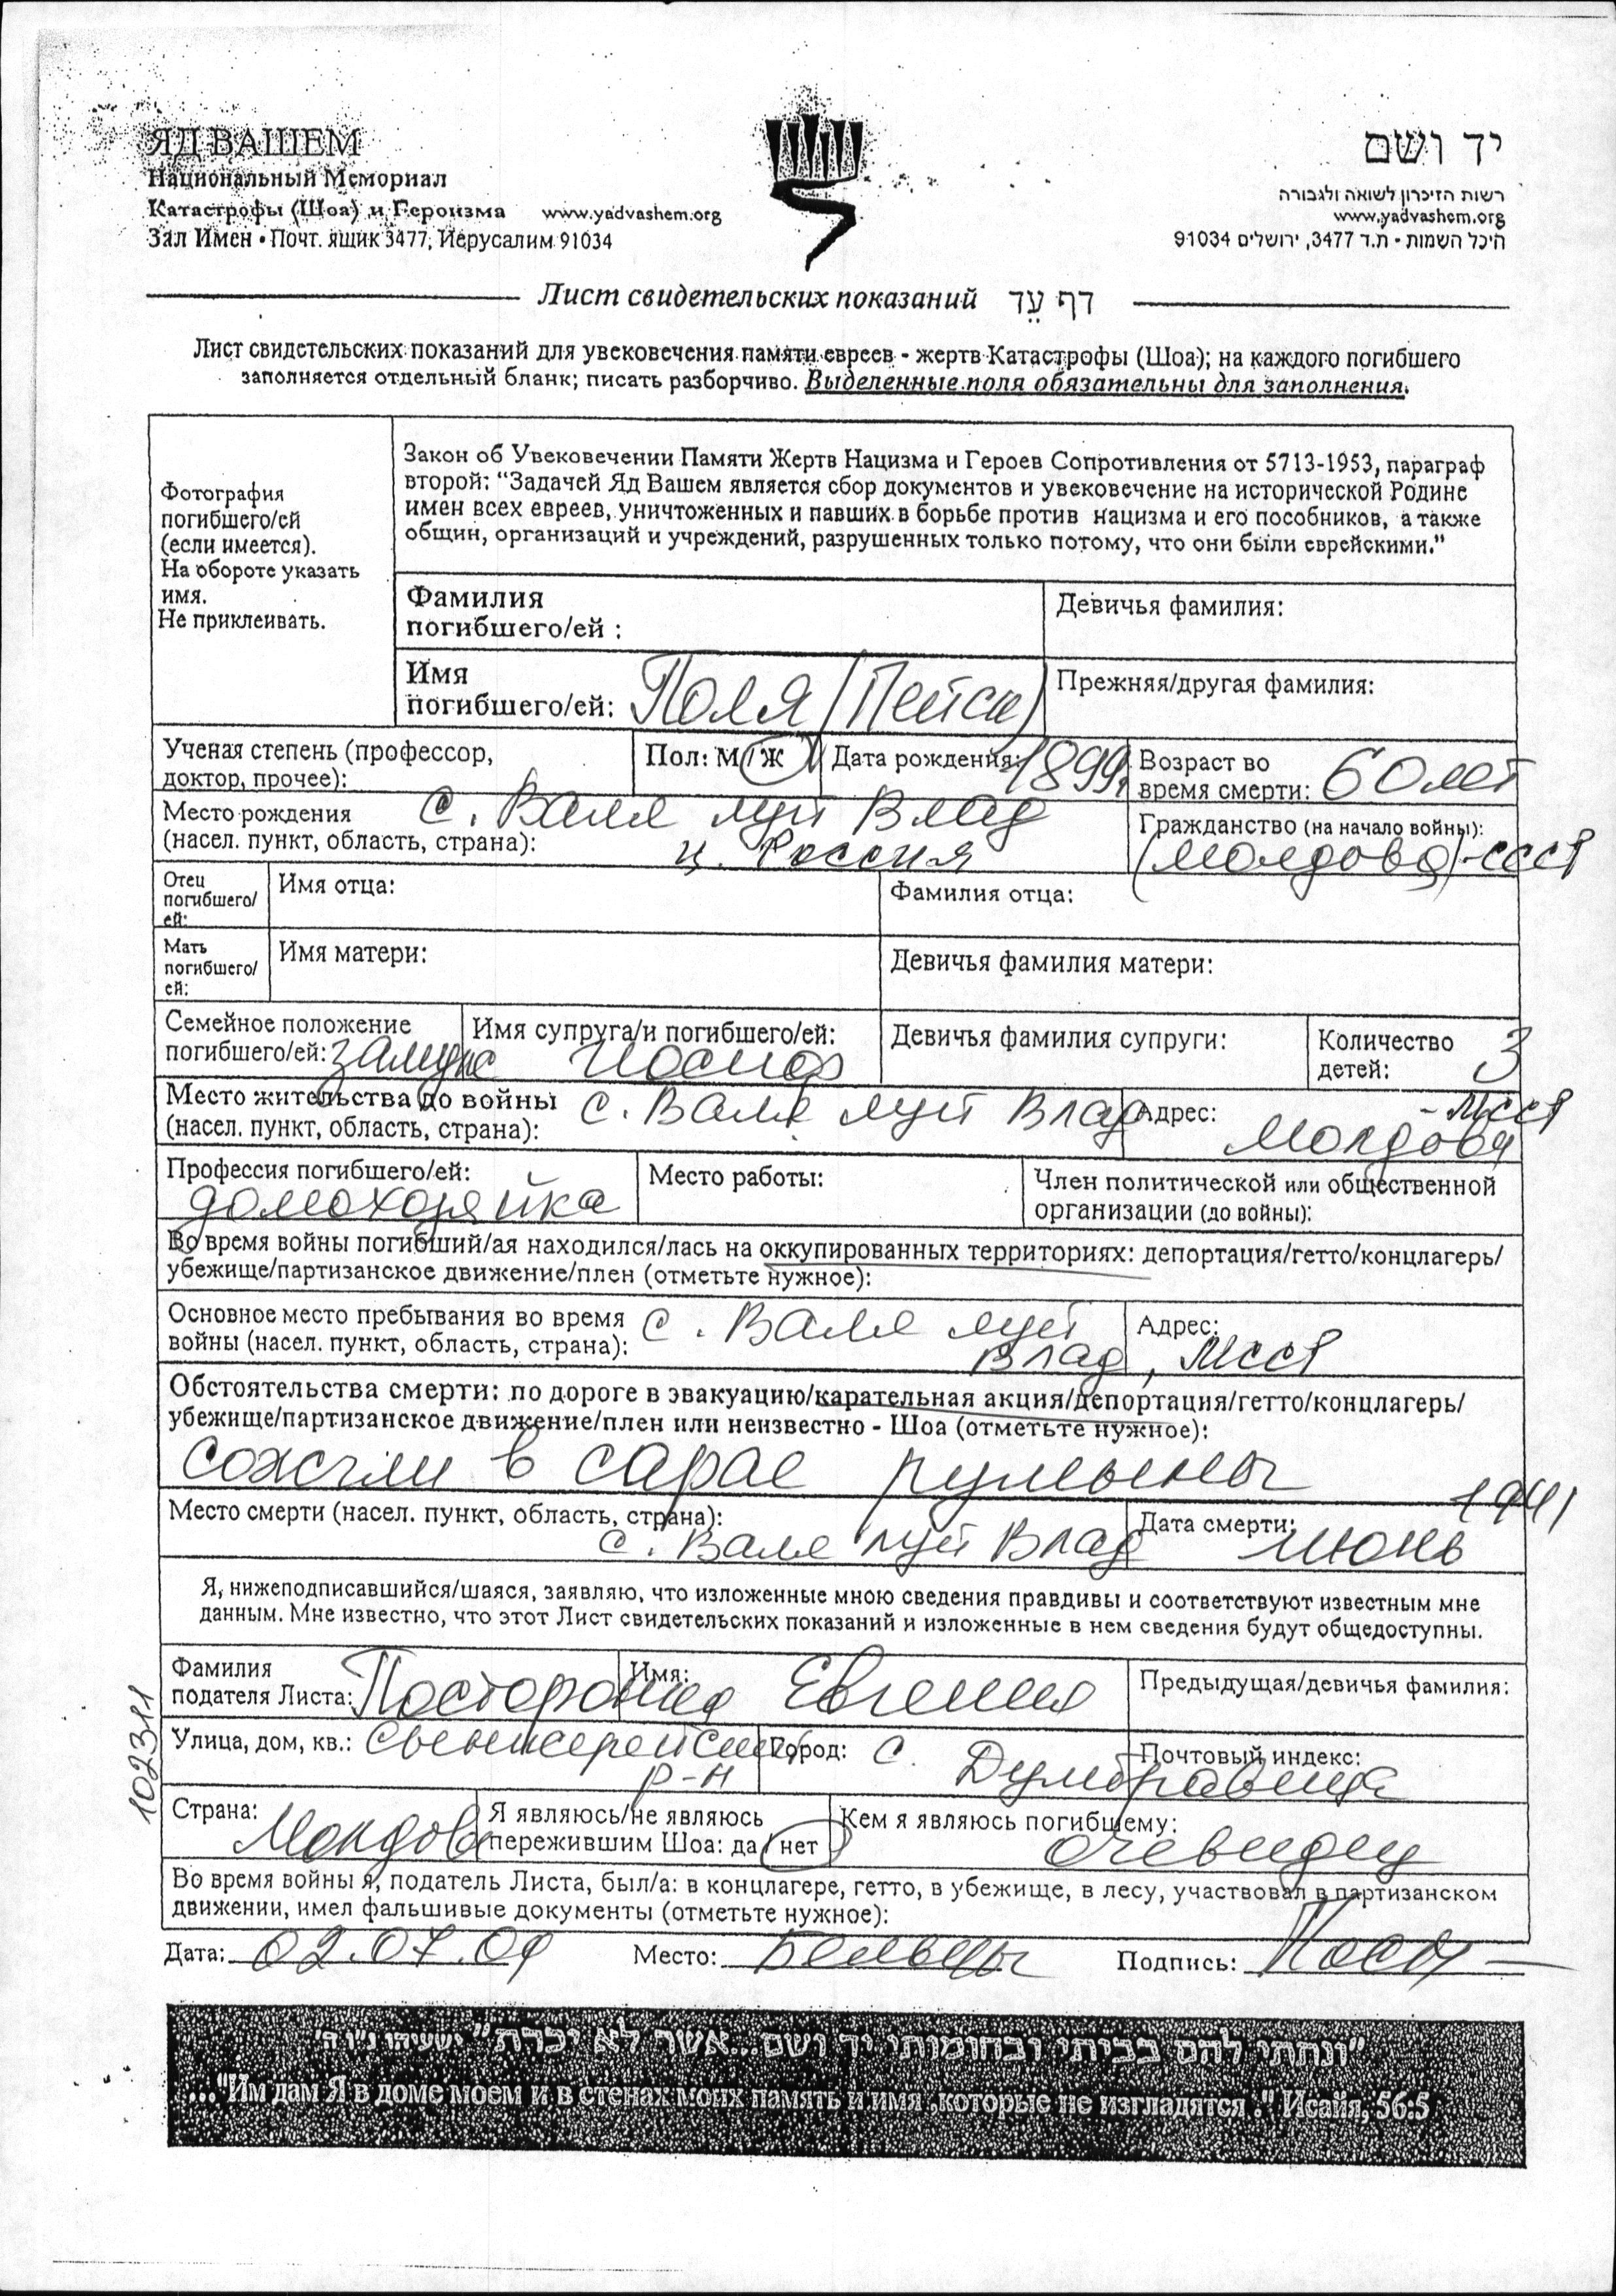 ЯД ВАШЕМ
Национальный Мемориал
Катастрофы (Шоа) и Героизма www.yadvashem.org
Зал Имен • Почт. ящик 3477, Иерусалим 91034
יד ושם
רשות הזיכרון לשואה ולגבורה
www.yadvashem.org
היכל השמות - ת.ד 3477, ירושלים 91034
Лист свидетельских показаний דף עֵד
Лист свидетельских показаний для увековечения памяти евреев - жертв Катастрофы (Шоа); на каждого погибшего
заполняется отдельный бланк; писать разборчиво. Выделенные поля обязательны для заполнения.
Фотография
погибшего/ей
(если имеется).
На обороте указать
имя.
Не приклеивать.
Закон об Увековечении Памяти Жертв Нацизма и Героев Сопротивления от 5713-1953, параграф
второй: “Задачей Яд Вашем является сбор документов и увековечение на исторической Родине
имен всех евреев, уничтоженных и павших в борьбе против нацизма и его пособников, а также
общин, организаций и учреждений, разрушенных только потому, что они были еврейскими.”
Фамилия
погибшего/ей :
Девичья фамилия:
Имя
погибшего/ей: Поля (Пейся)
Прежняя/другая фамилия:
Ученая степень (профессор,
доктор, прочее):
Пол: М/Ж
Дата рождения: 1899г
Возраст во
время смерти: 60 лет
Место рождения с. Валя луй Влад
(насел. пункт, область, страна): ц. Россия
Гражданство (на начало войны):
(Молдова)-СССР
Отец
погибшего/
ей:
Имя отца:
Фамилия отца:
Мать
погибшего/
ей:
Имя матери:
Девичья фамилия матери:
Семейное положение
погибшего/ей: замуж
Имя супруга/и погибшего/ей:
Иосиф
Девичья фамилия супруги:
Количество
детей: 3
Место жительства до войны с. Валя луй Влад
(насел. пункт, область, страна):
Адрес: - МССР
Молдова
Профессия погибшего/ей:
домохозяйка
Место работы:
Член политической или общественной
организации (до войны):
Во время войны погибший/ая находился/лась на оккупированных территориях: депортация/гетто/концлагерь/
убежище/партизанское движение/плен (отметьте нужное):
Основное место пребывания во время с. Валя луй
войны (насел. пункт, область, страна): Влад, МССР
Адрес:
Обстоятельства смерти: по дороге в эвакуацию/карательная акция/депортация/гетто/концлагерь/
убежище/партизанское движение/плен или неизвестно - Шоа (отметьте нужное):
сожгли в сарае румыны
Место смерти (насел. пункт, область, страна):
с. Валя луй Влад
Дата смерти: 1941
июнь
Я, нижеподписавшийся/шаяся, заявляю, что изложенные мною сведения правдивы и соответствуют известным мне
данным. Мне известно, что этот Лист свидетельских показаний и изложенные в нем сведения будут общедоступны.
Фамилия
подателя Листа:
Имя: Евгения
Предыдущая/девичья фамилия:
Улица, дом, кв.:
р-н
Город: с. Думбравица
Почтовый индекс:
Страна:
Молдова
Я являюсь/не являюсь
пережившим Шоа: да / нет
Кем я являюсь погибшему:
очевидец
Во время войны я, податель Листа, был/а: в концлагере, гетто, в убежище, в лесу, участвовал в партизанском
движении, имел фальшивые документы (отметьте нужное):
Дата: 02.07.09 Место: Бельцы Подпись:
102311
"ונתתי להם בביתי ובחומותי יד ושם...אשר לא יכרת" ישעיהו נ"ו ה'
..."Им дам Я в доме моем и в стенах моих память и имя ,которые не изгладятся ." Исайя, 56:5